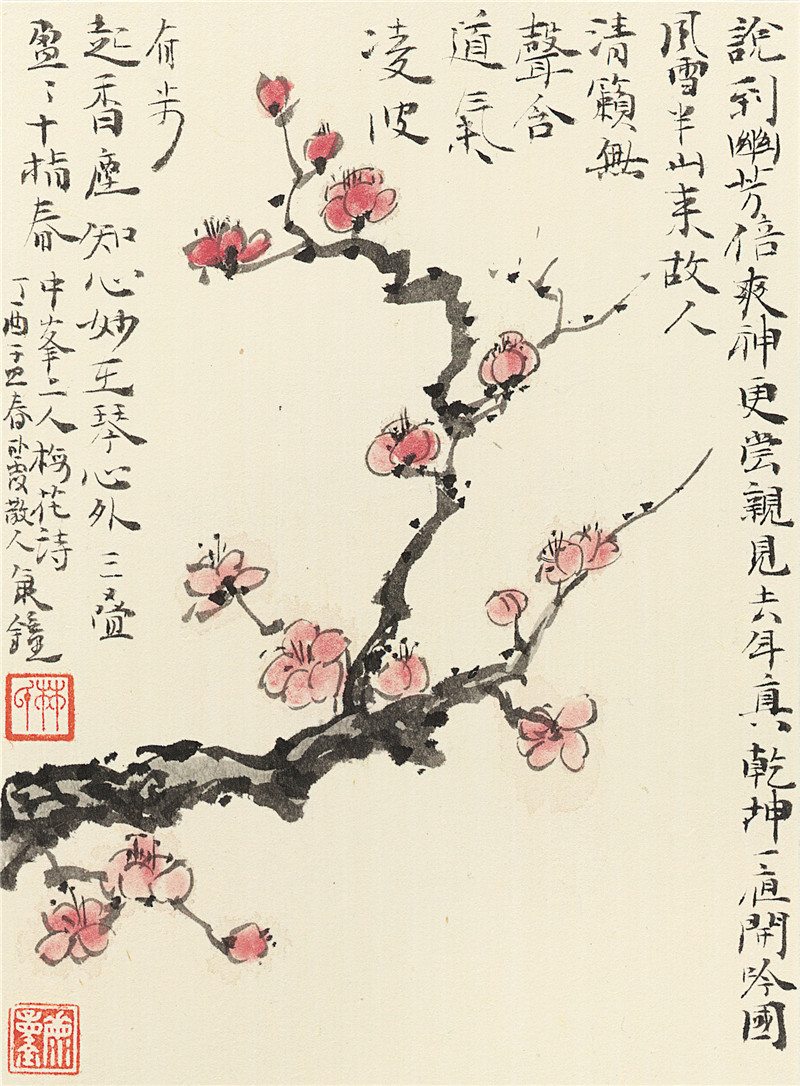 說到幽芳倍爽神更嘗親見去年真乾坤一夜開吟國
風雪半山來故人
清籟無
聲含
道氣
凌波
有步
起香塵知心妙在琴心外三疊
盈〻十指春
中峯上人梅花詩
丁酉孟春臥霞散人